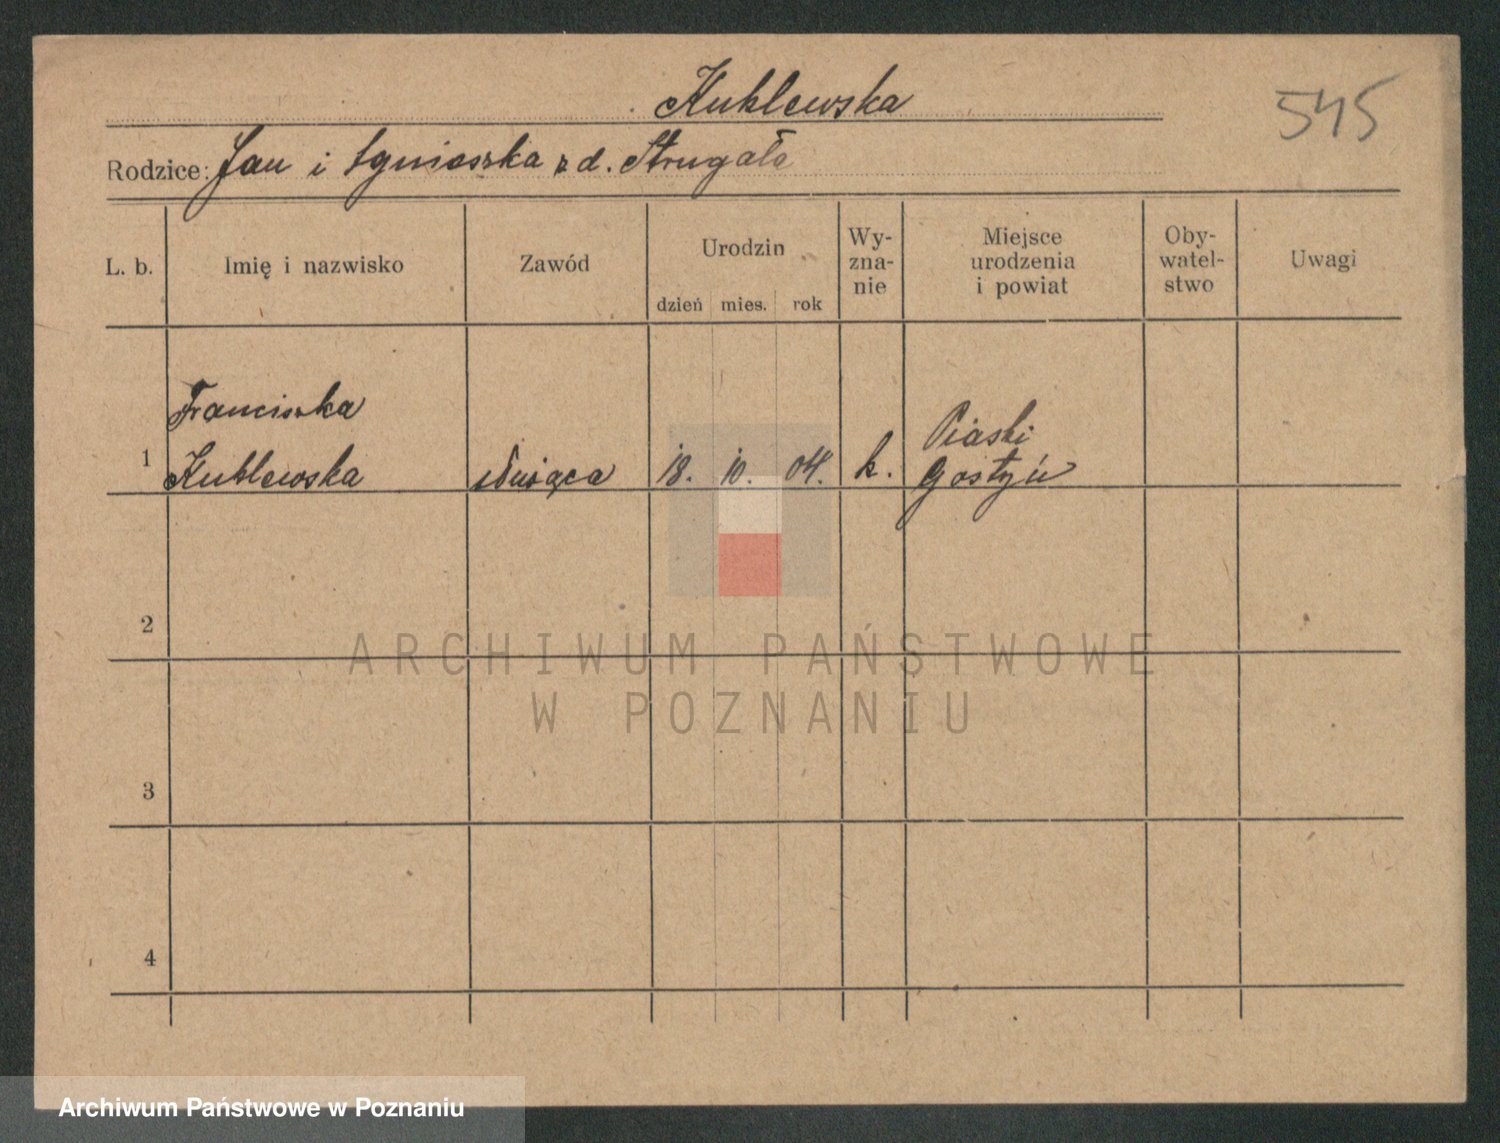 Kuklewska
545
Rodzice: Jan i Agnieszka z d. Strugała
L. b.
Imię i nazwisko
Zawód
Urodzin
dzień mies. rok
Wy-
zna-
nie
Miejsce
urodzenia
i powiat
Oby-
watel-
stwo
Uwagi
1
Franciszka
Kuklewska
służąca
18. 10. 04.
k.
Piaski
Gostyń
2
3
4
ARCHIWUM PAŃSTWOWE
W POZNANIU
Archiwum Państwowe w Poznaniu